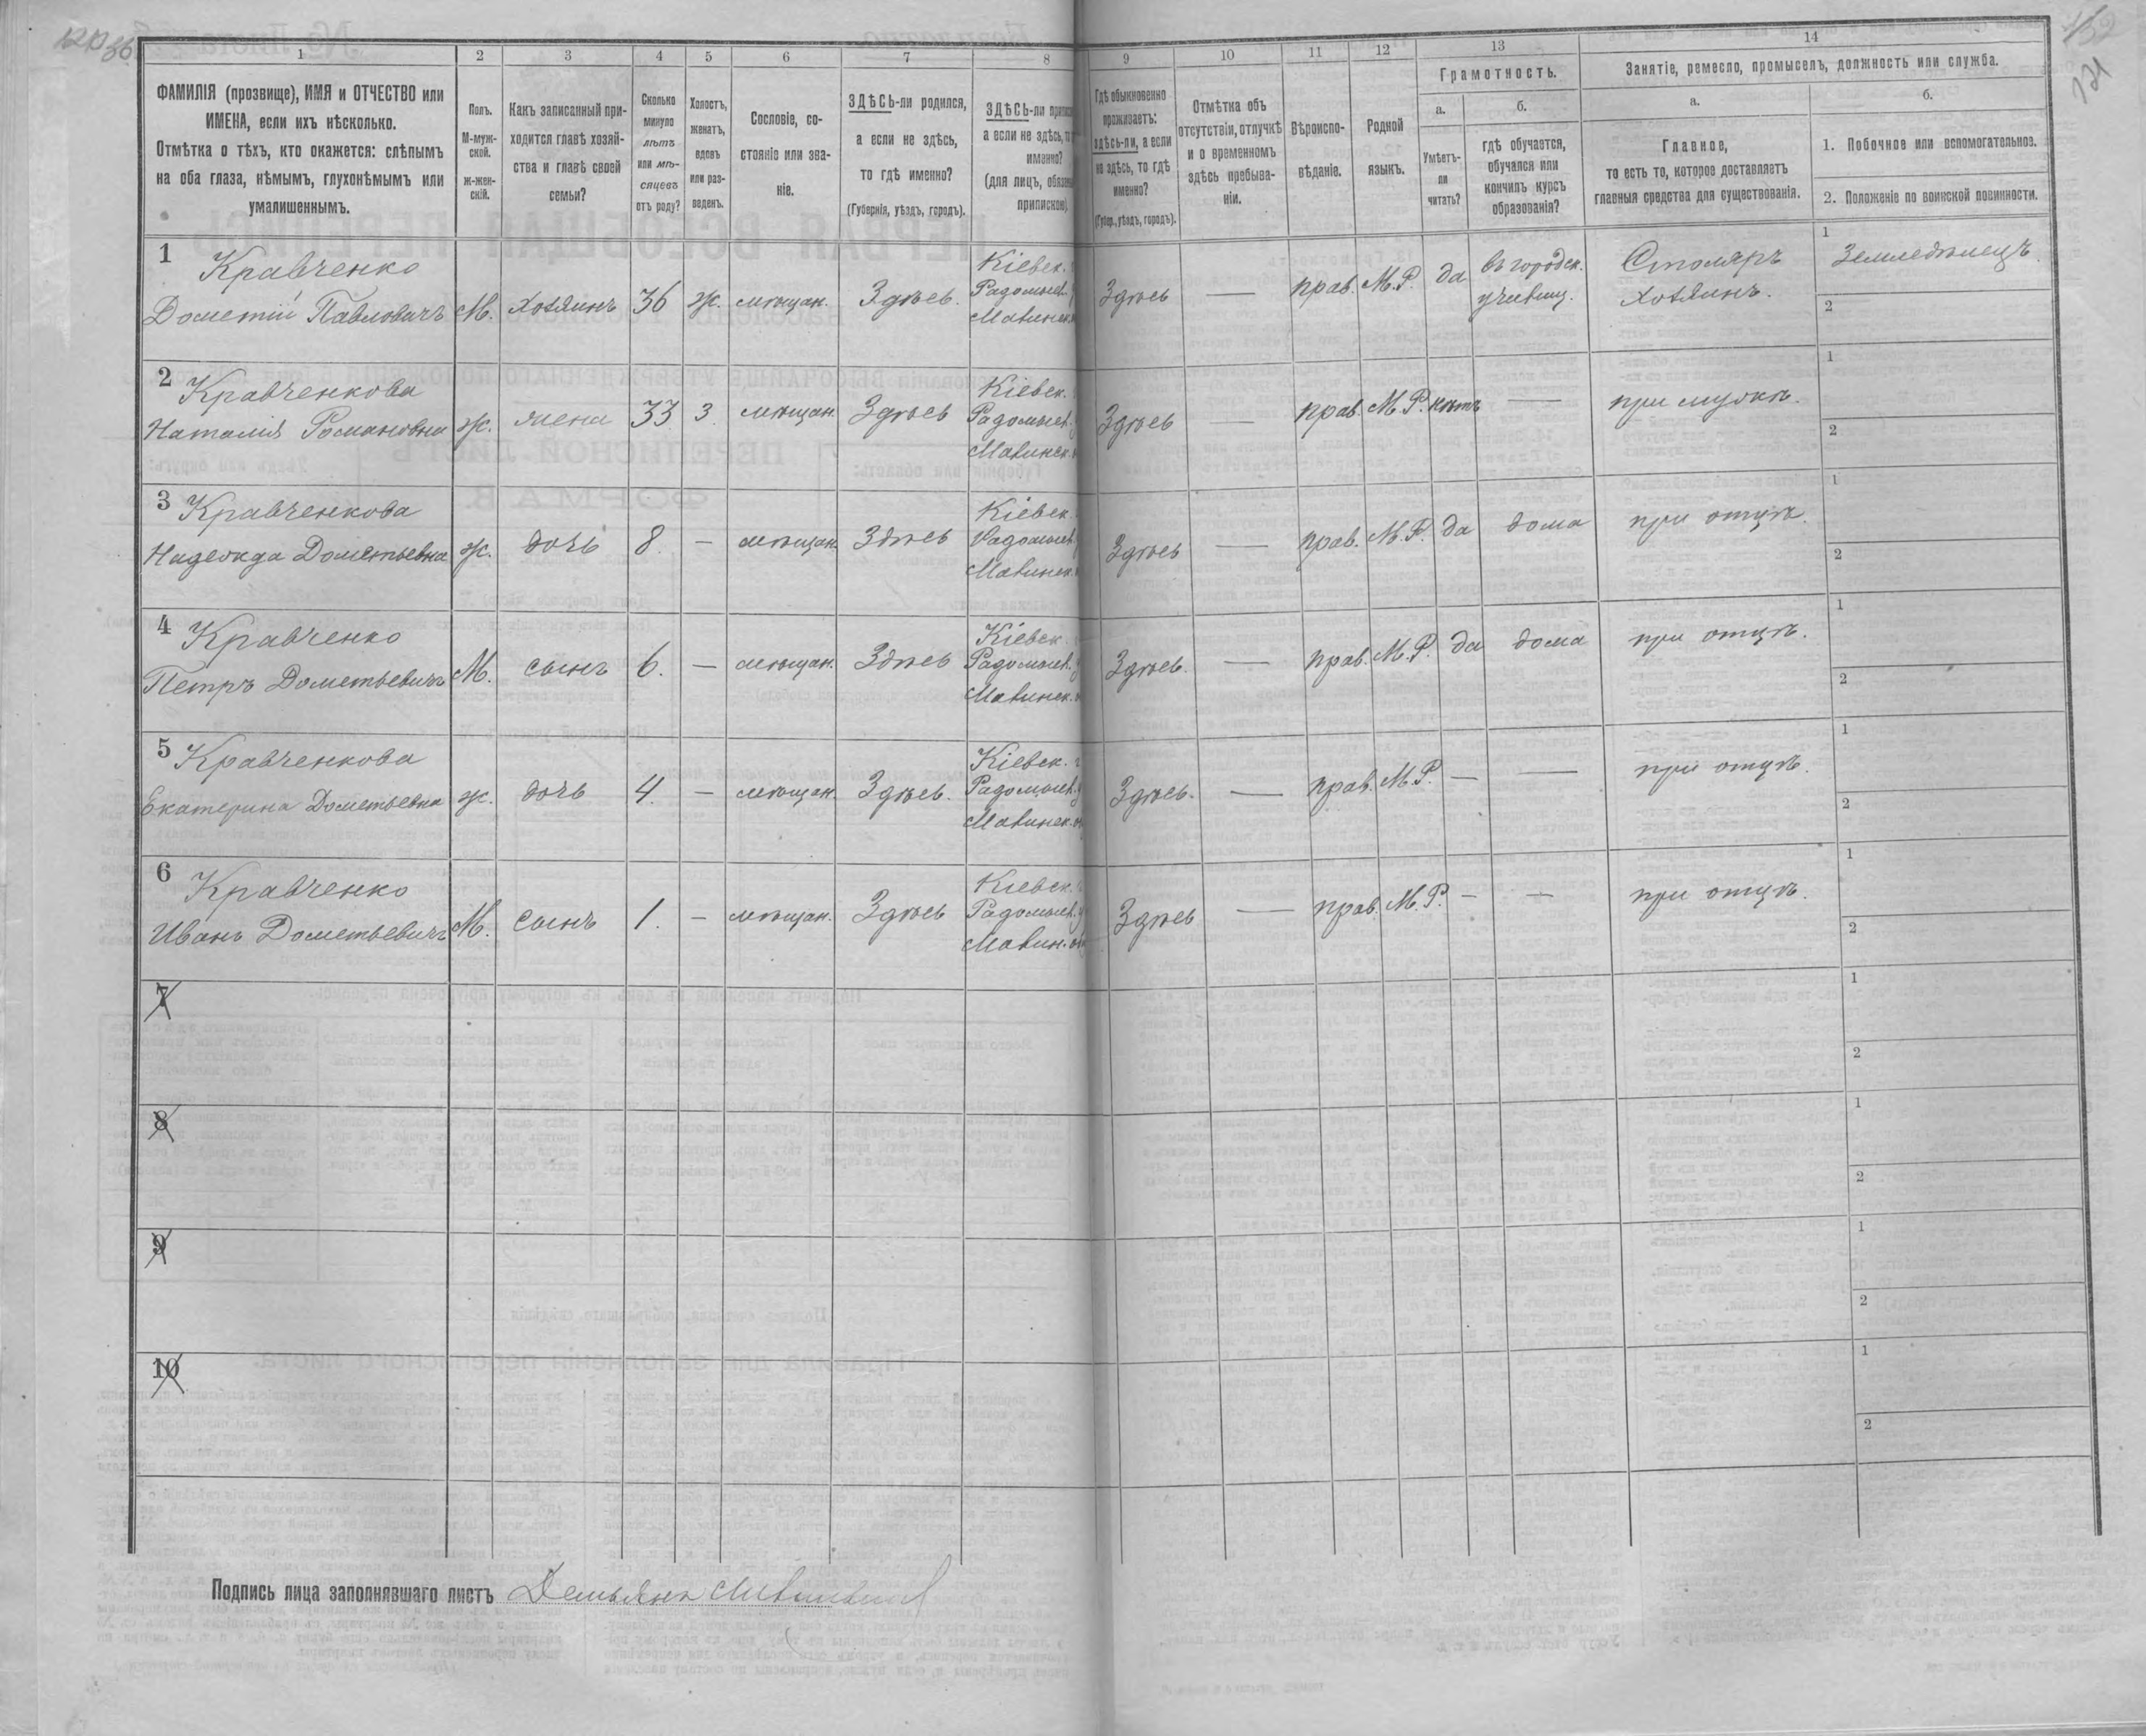 1 2 3 4 5 6 7 8 9 10 11 12 13 14
ФАМИЛІЯ (прозвище), ИМЯ и ОТЧЕСТВО или
ИМЕНА, если ихъ нѣсколько.
Отмѣтка о тѣхъ, кто окажется: слѣпымъ
на оба глаза, нѣмымъ, глухонѣмымъ или
умалишеннымъ.
Полъ.
М-муж-
ской.
Ж-жен-
скій.
Какъ записанный при-
ходится главѣ хозяй-
ства и главѣ своей
семьи?
Сколько
минуло
лѣтъ
или мѣ-
сяцевъ
отъ роду?
Холостъ,
женатъ,
вдовъ
или раз-
веденъ.
Сословіе, со-
стояніе или зва-
ніе.
ЗДѢСЬ-ли родился,
а если не здѣсь,
то гдѣ именно?
(Губернія, уѣздъ, городъ).
ЗДѢСЬ-ли
а если не здѣсь,
именно?
(для лицъ,
припискою).
Гдѣ обыкновенно
проживаетъ:
здѣсь-ли, а если
не здѣсь, то гдѣ
именно?
(Губер., уѣздъ, городъ).
Отмѣтка объ
отсутствіи, отлучкѣ
и о временномъ
здѣсь пребыва-
ніи.
Вѣроиспо-
вѣданіе.
Родной
языкъ.
Грамотность.
а.
Умѣетъ-
ли
читать?
б.
гдѣ обучается,
обучался или
кончилъ курсъ
образованія?
Занятіе, ремесло, промыселъ, должность или служба.
а.
Главное,
то есть то, которое доставляетъ
главныя средства для существованія.
б.
1. Побочное или вспомогательное.
2. Положеніе по воинской повинности.
1 Кравченко
Дометій Павловичъ М. Хозяинъ 36 ж. мѣщан. Здѣсь. Кіевск. Радомысл. Малинск. Здѣсь — прав. М.Р. да въ городск. училищ. Столяръ хозяинъ. 1 Земледѣлецъ
2
2 Кравченкова
Наталія Романовна ж. жена 33 з. мѣщан. Здѣсь Кіевск. Радомысл. Малинск. Здѣсь — прав. М.Р. нѣтъ — при мужѣ. 1
2
3 Кравченкова
Надежда Дометьевна ж. дочь 8. — мѣщан. Здѣсь Кіевск. Радомысл. Малинск. Здѣсь — прав. М.Р. да дома при отцѣ. 1
2
4 Кравченко
Петръ Дометьевичъ М. сынъ 6. — мѣщан. Здѣсь Кіевск. Радомысл. Малинск. Здѣсь. — прав. М.Р. да дома при отцѣ. 1
2
5 Кравченкова
Екатерина Дометьевна ж. дочь 4. — мѣщан. Здѣсь. Кіевск. Радомысл. Малинск. Здѣсь. — прав. М.Р. — — при отцѣ. 1
2
6 Кравченко
Иванъ Дометьевичъ М. сынъ 1. — мѣщан. Здѣсь Кіевск. Радомысл. Малин. Здѣсь — прав. М.Р. — — при отцѣ. 1
2
7 1
2
8 1
2
9 1
2
10 1
2
Подпись лица заполнявшаго листъ Демьянъ